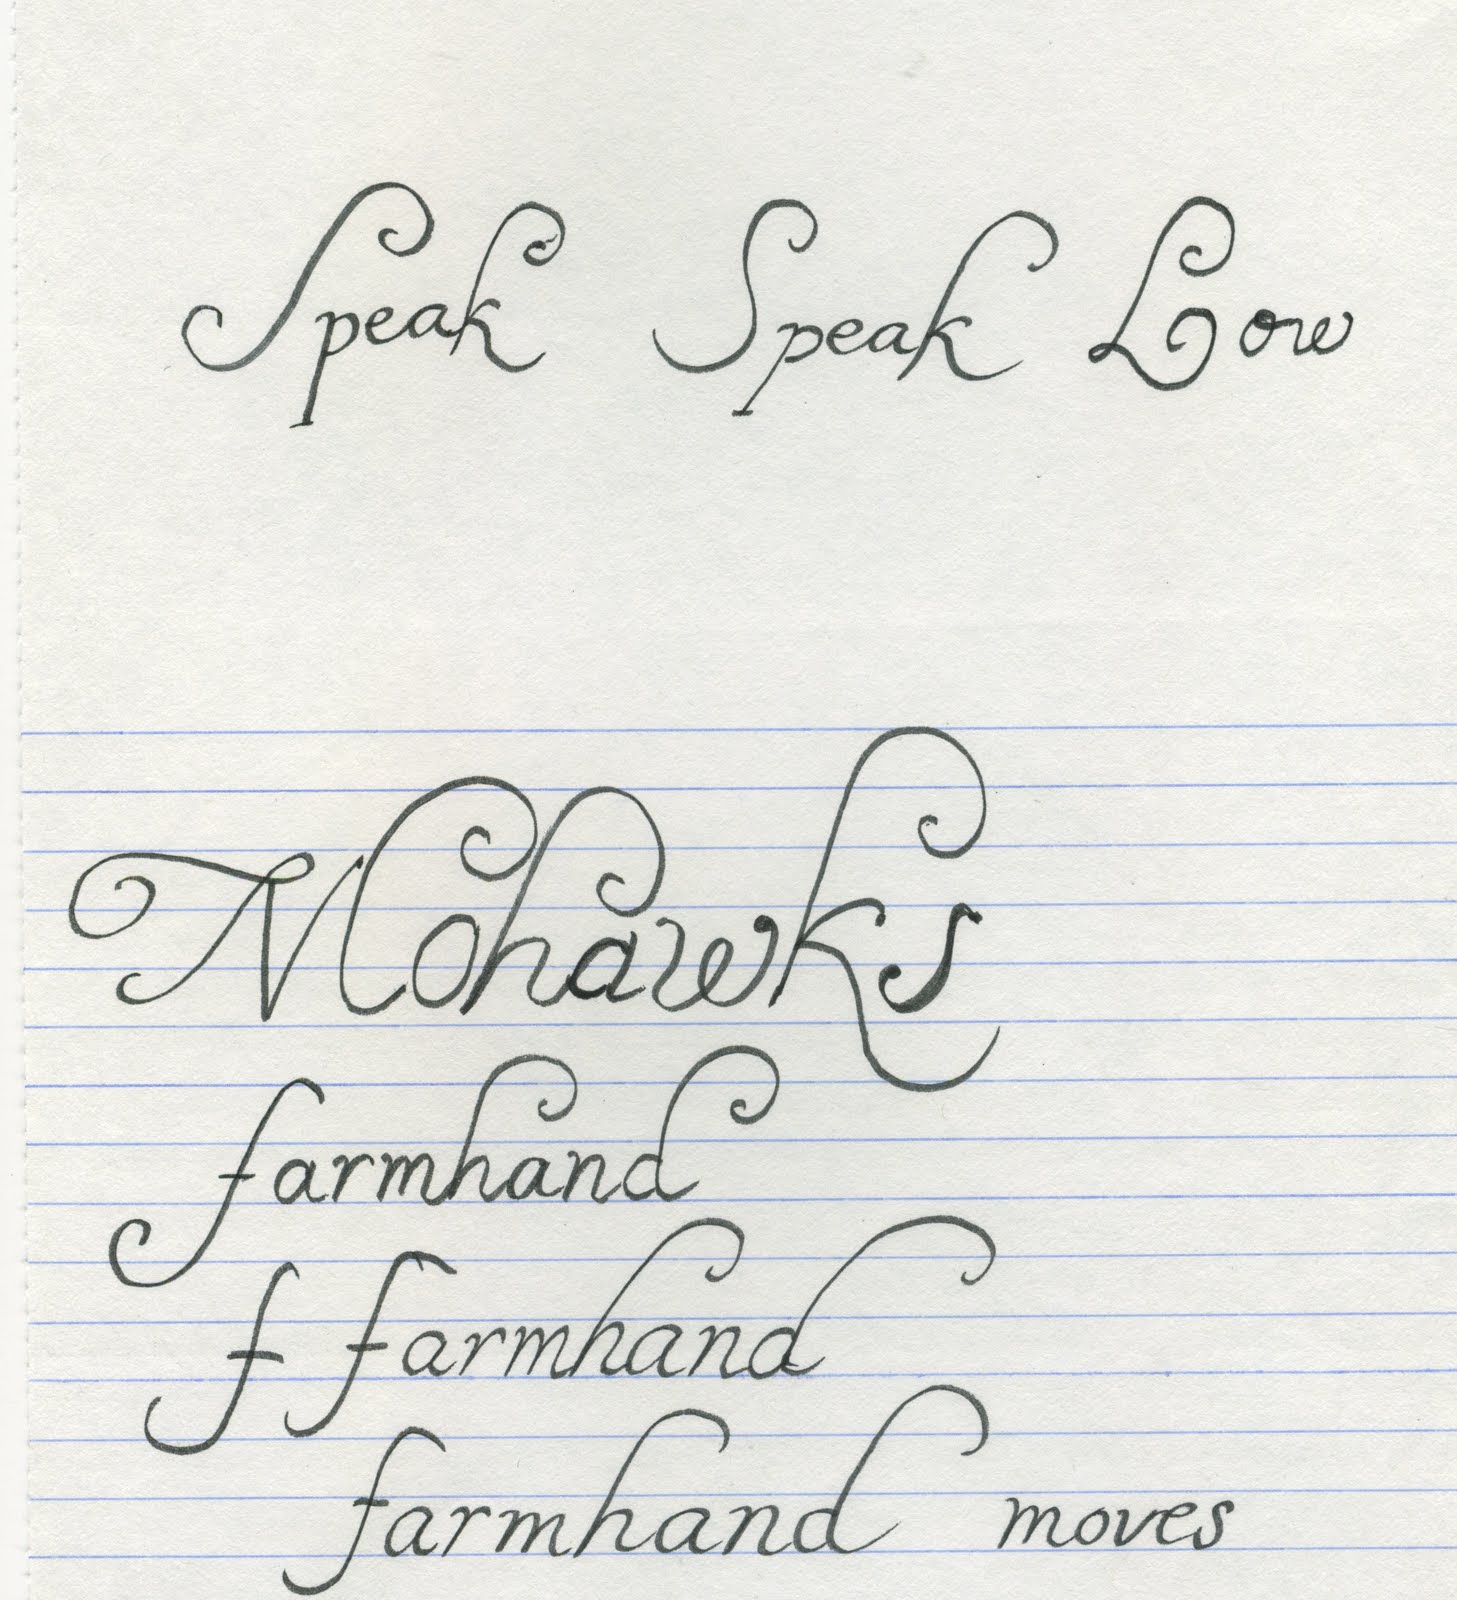 Speak Speak Low
Mohawks
farmhand
f farmhand
farmhand moves